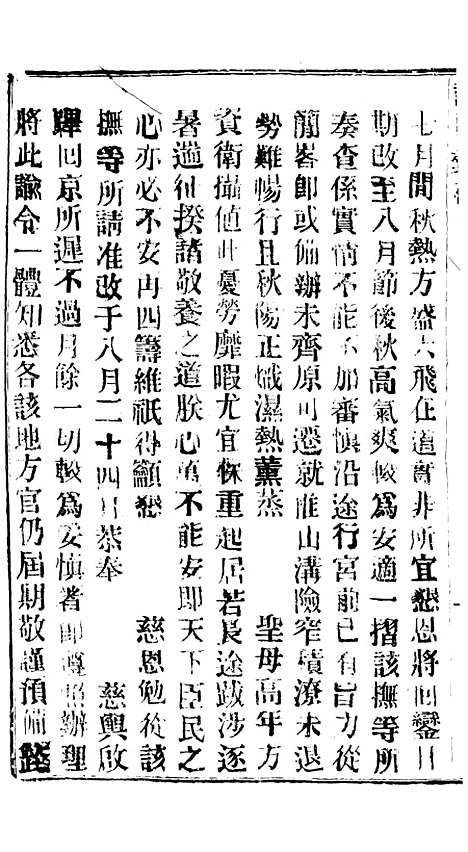 七月間秋熱方盛六飛在道實非所宜懇恩將回鑾日
期改至八月節後秋高氣爽較爲安適一摺該撫等所
奏查係實情不能不加審慎沿途行宮前已有旨力從
簡畧即或備辦未齊原可遷就惟山溝險窄積潦未退
勢難暢行且秋陽正熾濕熱薰蒸 聖母高年方
資衛攝値此憂勞靡暇尤宜保重起居若長途跋涉逐
暑遄征揆諸敬養之道朕心萬不能安即天下臣民之
心亦必不安再四籌維祇得籲懇 慈恩勉從該
撫等所請准改于八月二十四日恭奉 慈輿啟
蹕回京所遲不過月餘一切較爲安慎著即遵照辦理
將此諭令一體知悉各該地方官仍屆期敬謹預備